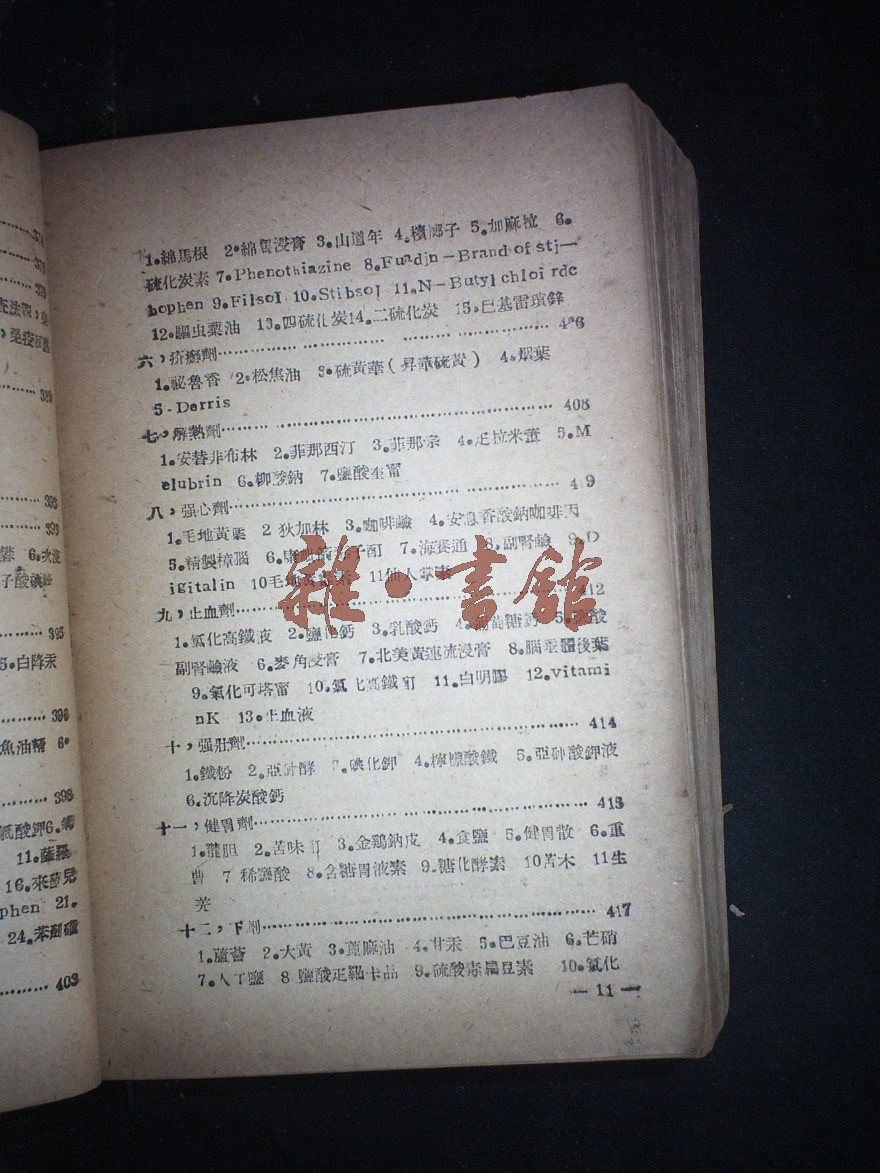 374
378
379
389
393
393
6.
395
5.白降汞
396
魚油精 6.
398
氯酸鉀6.
11.薩羅
16.來莎兒
phen 21.
24.
403
1.綿馬根 2.綿馬浸膏 3.山道年 4.檳榔子 5.加麻粒 6.
硫化炭素 7.Phenothiazine 8.Fuadjn—Brand of stj—
bophen 9.FilsoI 10.StibsoI 11.N—Butyl chloi rdc
12.驅虫粟油 13.四硫化炭14.二硫化炭 15.巴基雷瑣鋅
六，疥癬劑
1.祕魯香 2.松焦油 3.硫黃華(昇華硫黃) 4.烟葉
5.Derris
七，解熱劑 408
1.安替非布林 2.菲那西汀 3.菲那宗 4.疋拉米董 5.M
elubrin 6.柳酸鈉 7.鹽酸奎甯
八，强心劑 4 9
1.毛地黃葉 2 狄加林 3.咖啡鹼 4.安息香酸鈉咖啡因
5.精製樟腦 6. 7.海賽通 8.副腎鹼 9.D
igitalin 10毛地黃毒素 11仙人掌素
九，止血劑 412
1.氯化高鐵液 2.鹽化鈣 3.乳酸鈣 4.葡萄糖鈣 5.鹽酸
副腎鹼液 6.麥角浸膏 7.北美黃連流浸膏 8.腦垂體後葉
9.氧化可塔甯 10.氯化高鐵酊 11.白明膠 12.vitami
nK 13.止血液
十，强壯劑 414
1.鐵粉 2.亞砒酵 7.碘化鉀 4.檸檬酸鐵 5.亞砷酸鉀液
6.沉降炭酸鈣
十一，健胃劑 415
1.龍胆 2.苦味酊 3.金鷄鈉皮 4.食鹽 5.健胃散 6.重
曹 7 稀鹽酸 8.含糖胃液素 9.糖化酵素 10苦木 11生
羌
十二，下劑 417
1.蘆薈 2.大黃 3.蓖麻油 4.甘汞 5.巴豆油 6.芒硝
7.人工鹽 8 鹽酸疋羅卡品 9.硫酸毒扁豆素 10.氯化
—11—
雜·書館